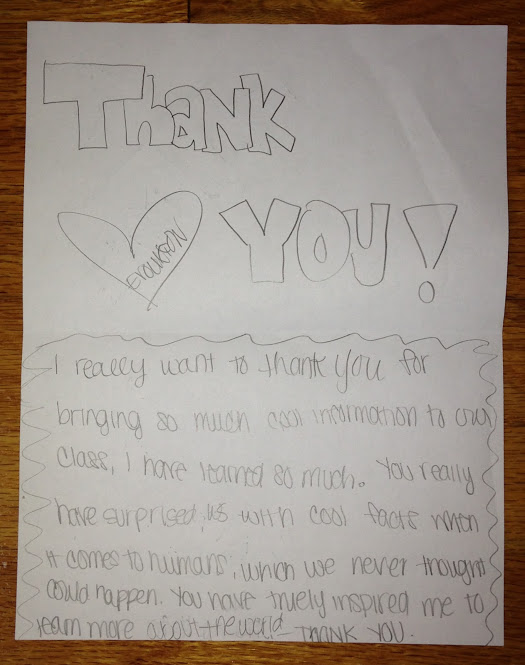 Thank
EVOLUTION
YOU!
I really want to thank you for
bringing so much cool information to our
class, I have learned so much. You really
have surprised us with cool facts when
it comes to humans, which we never thought
could happen. You have truely inspired me to
learn more about the world THANK YOU.